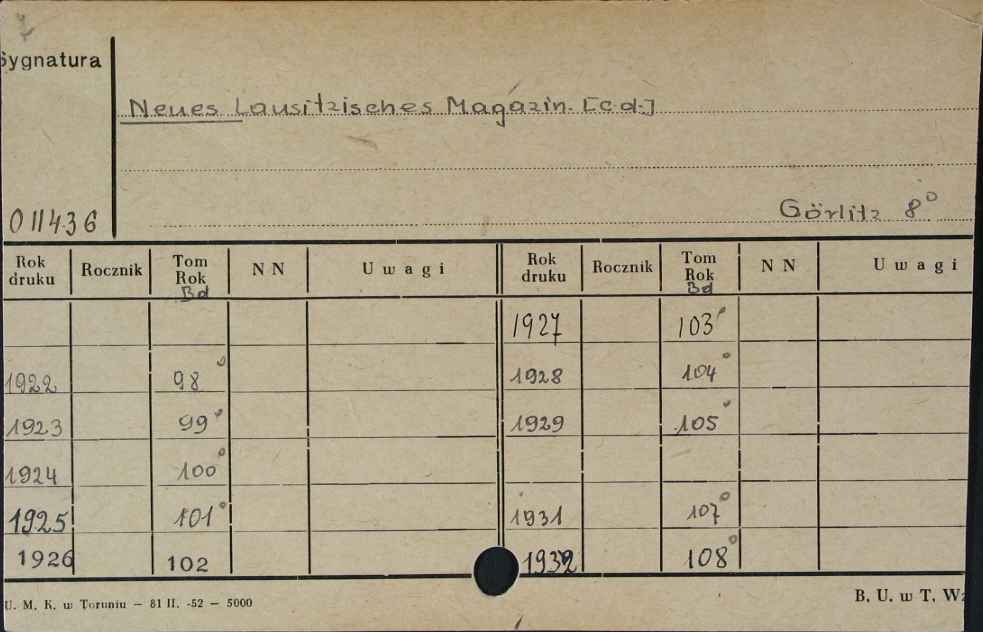 Sygnatura
Neues Lausitzisches Magazin. [c.d.]
Görlitz 8°
011436
Rok druku Rocznik Tom Rok Bd NN Uwagi Rok druku Rocznik Tom Rok Bd NN Uwagi
1927 103°
1922 98° 1928 104°
1923 99° 1929 105°
1924 100°
1925 101° 1931 107°
1926 102 1932 108°
U. M. K. w Toruniu — 81 II. -52 — 5000
B. U. w T. Wz